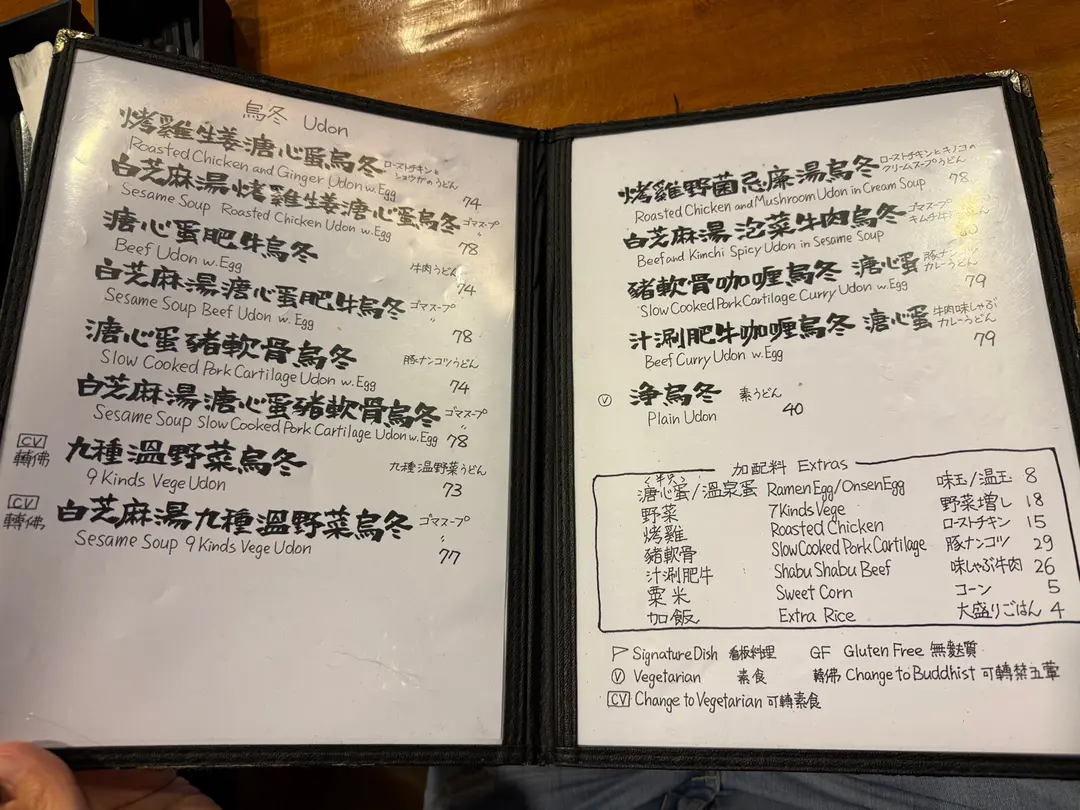 烏冬 Udon
烤雞生姜溏心蛋烏冬 ローストチキンと
ショウガのうどん
Roasted Chicken and Ginger Udon w. Egg 74
白芝麻湯烤雞生姜溏心蛋烏冬 ゴマスープ
〃
Sesame Soup Roasted Chicken Udon w. Egg 78
溏心蛋肥牛烏冬 牛肉うどん
Beef Udon w. Egg 74
白芝麻湯溏心蛋肥牛烏冬 ゴマスープ
〃
Sesame Soup Beef Udon w. Egg 78
溏心蛋豬軟骨烏冬 豚ナンコツうどん
Slow Cooked Pork Cartilage Udon w. Egg 74
白芝麻湯溏心蛋豬軟骨烏冬 ゴマスープ
〃
Sesame Soup Slow Cooked Pork Cartilage Udon w. Egg 78
CV
轉佛
九種溫野菜烏冬 九種温野菜うどん
9 Kinds Vege Udon 73
CV
轉佛
白芝麻湯九種溫野菜烏冬 ゴマスープ
〃
Sesame Soup 9 Kinds Vege Udon 77
烤雞野菌忌廉湯烏冬 ローストチキンとキノコの
クリームスープうどん
Roasted Chicken and Mushroom Udon in Cream Soup 78
白芝麻湯泡菜牛肉烏冬 ゴマスープ
キムチ牛
Beef and Kimchi Spicy Udon in Sesame Soup
豬軟骨咖喱烏冬 溏心蛋 豚ナンコツ
カレーうどん
Slow Cooked Pork Cartilage Curry Udon w. Egg 79
汁涮肥牛咖喱烏冬 溏心蛋 牛肉味しゃぶ
カレーうどん
Beef Curry Udon w. Egg 79
V 淨烏冬 素うどん
Plain Udon 40
加配料 Extras
<半只>
溏心蛋/溫泉蛋 Ramen Egg/Onsen Egg 味玉/温玉 8
野菜 7 Kinds Vege 野菜増し 18
烤雞 Roasted Chicken ローストチキン 15
豬軟骨 Slow Cooked Pork Cartilage 豚ナンコツ 29
汁涮肥牛 Shabu Shabu Beef 味しゃぶ牛肉 26
粟米 Sweet Corn コーン 5
加飯 Extra Rice 大盛りごはん 4
Signature Dish 看板料理 GF Gluten Free 無麩質
V Vegetarian 素食 轉佛 Change to Buddhist 可轉禁五葷
CV Change to Vegetarian 可轉素食